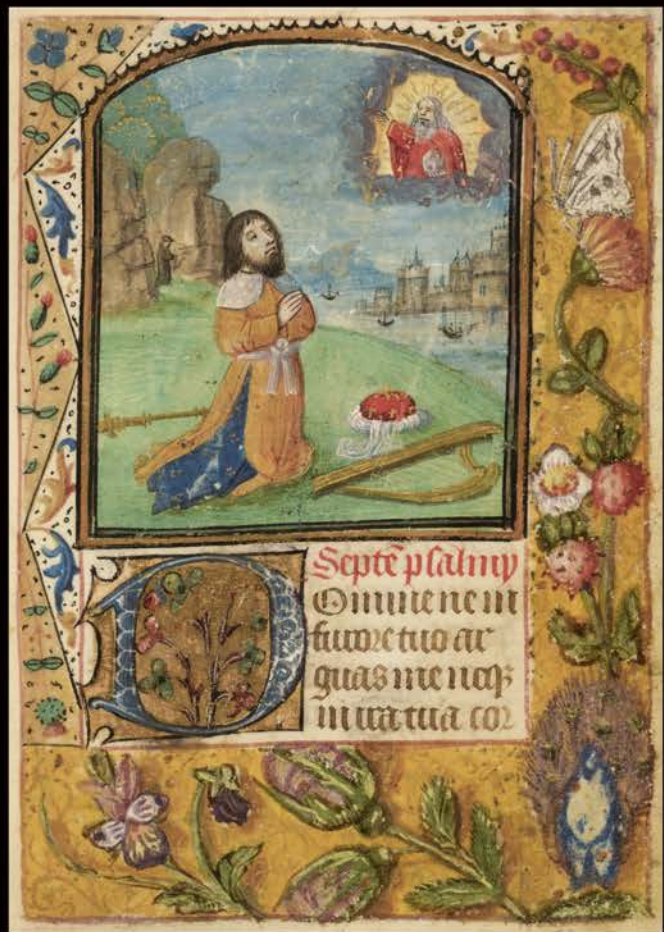 Septē psalmy
DOmine ne in
furore tuo ar
guas me neqꝫ
in ira tua cor